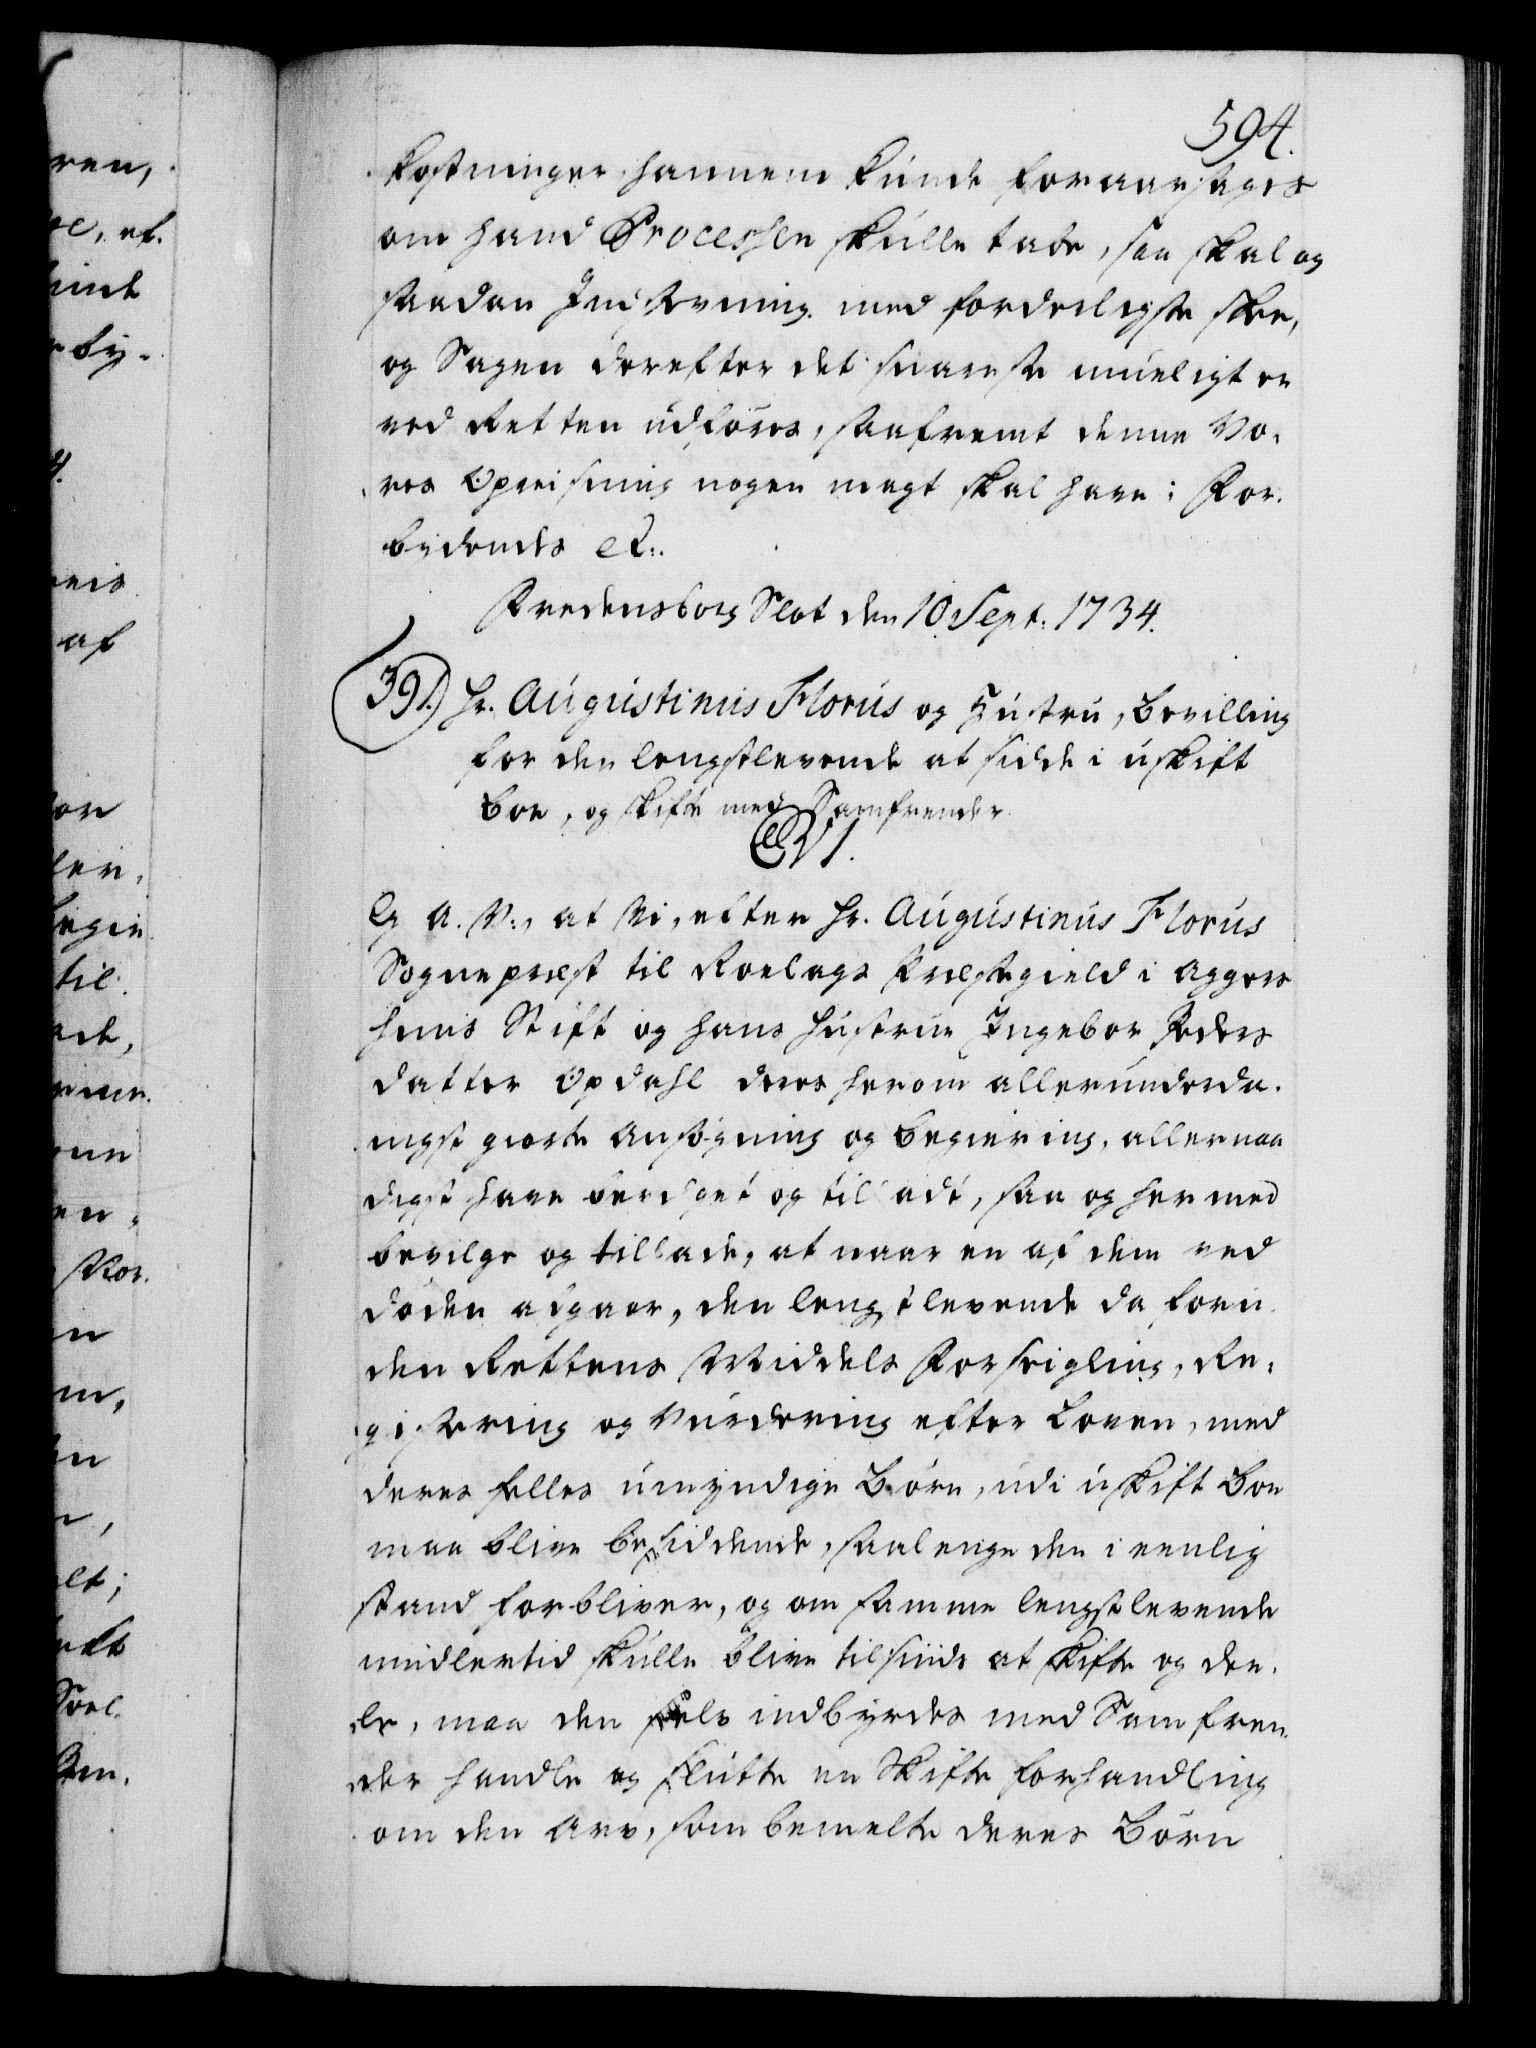 594.
kostninger hannem kunde foraarsages
om hand Processen skulle tabe, saa skal og
saadan Indstevning med forderligste skee,
og Sagen derefter det snareste mueligt er
ved Retten udføres, saafremt denne Vo-
res Opreisning nogen magt skal have; For-
bydendes etc.
Fredensborg Slot den 10 Sept: 1734.
391.) Hr. Augustinus Florus og Hustru, Bevilling
for den lengstlevende at sidde i uskift
Boe, og skifte med Samfrender.
C 6ti.
G. A. V:, at Vi, efter Hr. Augustinus Florus
Sognepræst til Roelags Præstegield i Aggers
huus Stift og hans Hustrue Ingebor Peders
datter Opdahl deres herom allerunderda-
nigst giorte Ansøgning og Begiering, allernaa
digst have bevilget og tilladt, saa og hermed
bevilge og tillade, at naar en af dem ved
døden afgaar, den lengstlevende da foru-
den Rettens Middels Forseigling, Re-
gistering og Vurdering efter Loven, med
deres felles umyndige Børn, udi uskift Boe
maa blive besiddende, saalenge den i eenlig
stand forbliver, og om samme lengstlevende
imidlertid skulle blive tilsinds at skifte og dee-
le, maa den selv indbyrdes med Samfren-
der handle og slutte en Skifte forhandling
om den Arv, som bemelte deres Børn
ren,
af
til